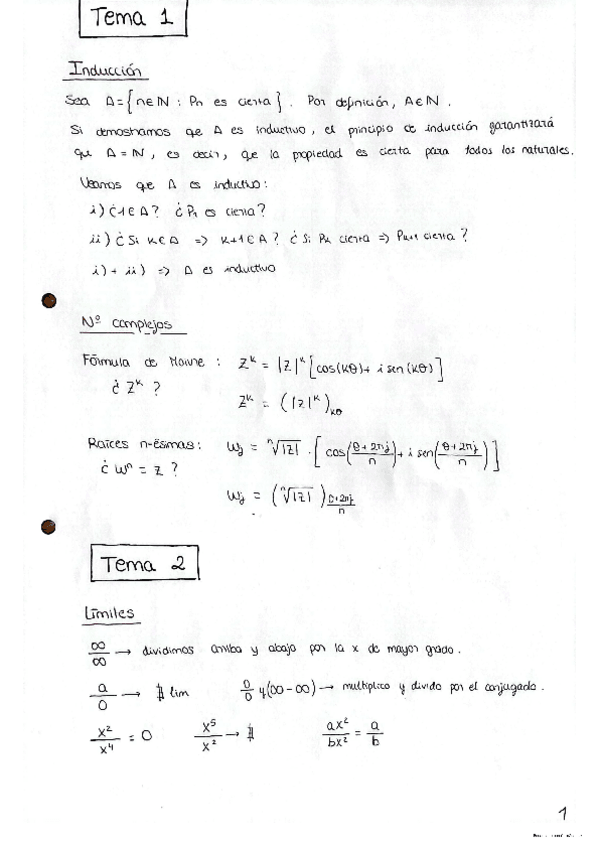 Tema 1
Inducción
Sea A = {n∈ℕ : Pn es cierta}. Por definición, A∈ℕ.
Si demostramos que A es inductivo, el principio de inducción garantizará
que A = ℕ, es decir, que la propiedad es cierta para todos los naturales.
Veamos que A es inductivo:
i) ¿1∈A? ¿P₁ es cierta?
ii) ¿Si k∈A => k+1∈A? ¿Si Pk cierta => Pk+1 cierta?
i) + ii) => A es inductivo
Nº complejos
Fórmula de Moivre : z^k = |z|^k [cos(kθ) + i sen(kθ)]
¿z^k ?
z^k = (|z|^k)_kθ
Raíces n-ésimas: wj = ⁿ√|z| · [cos((θ+2πj)/n) + i sen((θ+2πj)/n)]
¿wⁿ = z ?
wj = (ⁿ√|z|)_(θ+2πj)/n
Tema 2
Límites
∞/∞ → dividimos arriba y abajo por la x de mayor grado.
a/0 → ∄ lim 0/0 y (∞-∞) → multiplico y divido por el conjugado.
x²/x⁴ = 0 x⁵/x² → ∄ ax²/bx² = a/b
1